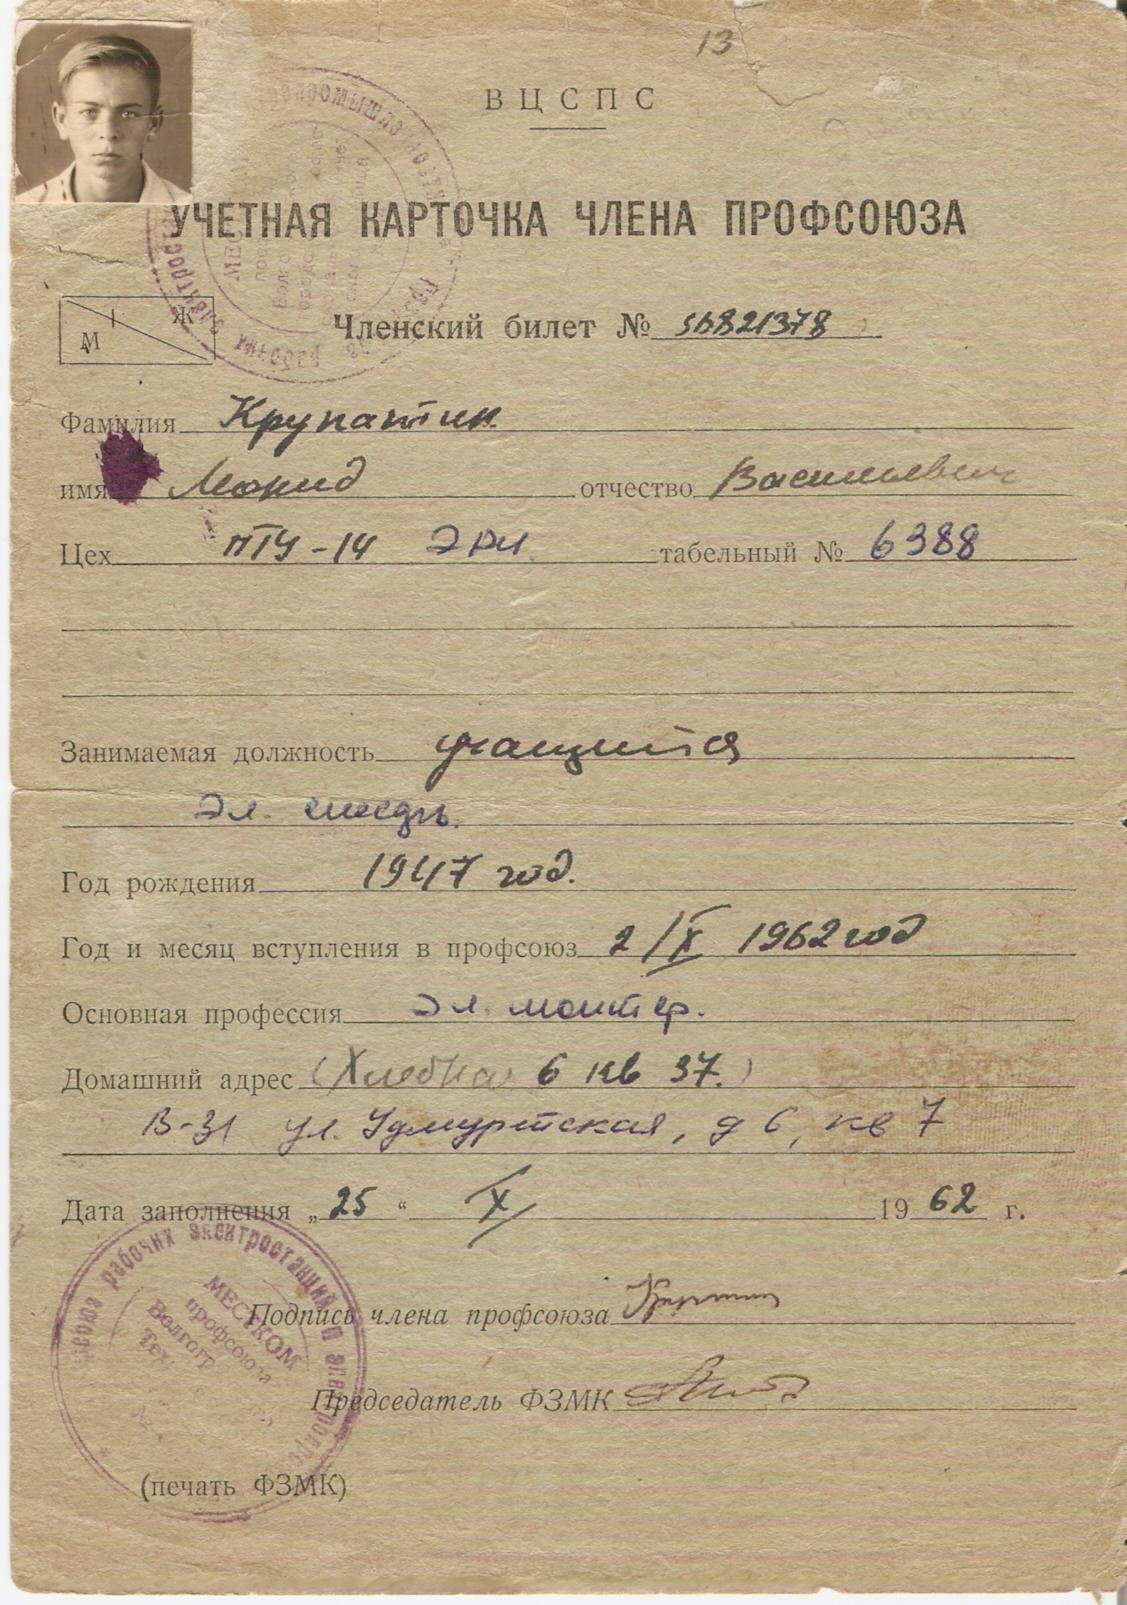 13
ВЦСПС
УЧЕТНАЯ КАРТОЧКА ЧЛЕНА ПРОФСОЮЗА
М Ж
Членский билет № 56821378
Фамилия Крупаткин
имя Леонид отчество Васильевич
Цех ПТУ-14 ЭРЦ табельный № 6388
Занимаемая должность учащийся
Эл.
Год рождения 1947 год.
Год и месяц вступления в профсоюз 2/IX 1962 год
Основная профессия Эл. монтер.
Домашний адрес (6 кв 37.)
В-31 ул. Удмуртская, д 6, кв 7
Дата заполнения „25“ X 1962 г.
союза рабочих электростанций и электропро
МЕСТКОМ
профсоюза
Волгогр
Тех
Подпись члена профсоюза
Председатель ФЗМК
(печать ФЗМК)